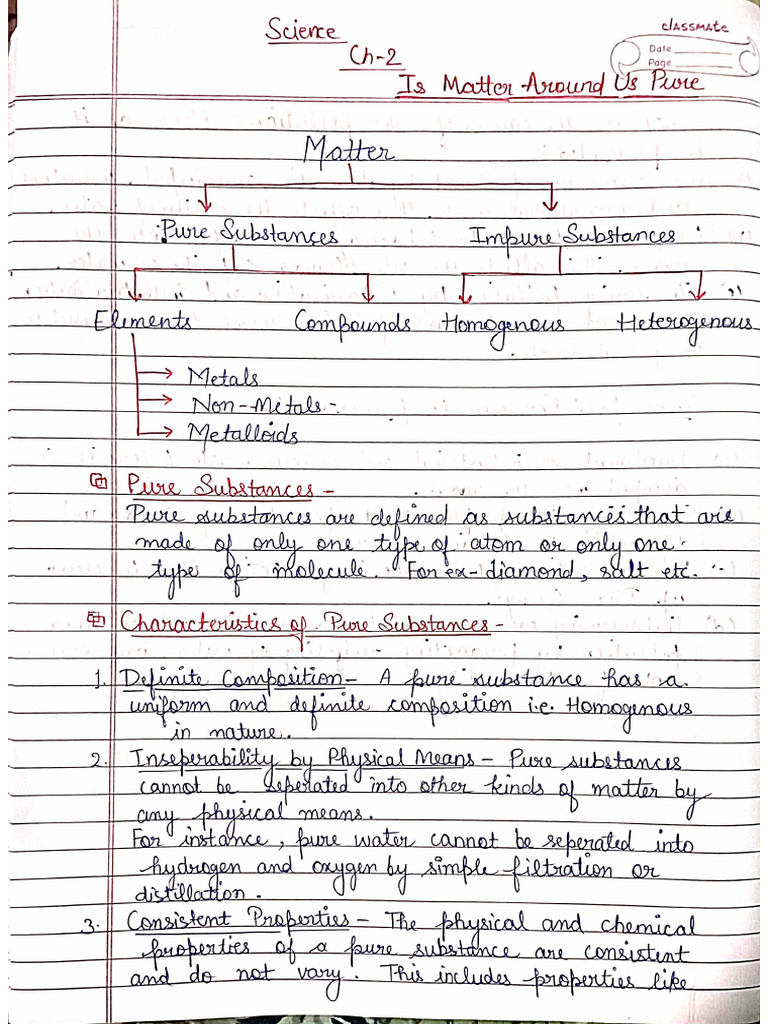 Science
classmate
Date
Page
Ch-2
Is Matter Around Us Pure
Matter
Pure Substances
Impure Substances
Elements
Compounds
Homogenous
Heterogenous
Metals
Non-Metals
Metalloids
Pure Substances -
Pure substances are defined as substances that are
made of only one type of atom or only one
type of molecule. For ex- diamond, salt etc.
Characteristics of Pure Substances -
1. Definite Composition - A pure substance has a
uniform and definite composition i.e. Homogenous
in nature.
2. Inseperability by Physical Means - Pure substances
cannot be seperated into other kinds of matter by
any physical means.
For instance, pure water cannot be seperated into
hydrogen and oxygen by simple filtration or
distillation.
3. Consistent Properties - The physical and chemical
properties of a pure substance are consistent
and do not vary. This includes properties like